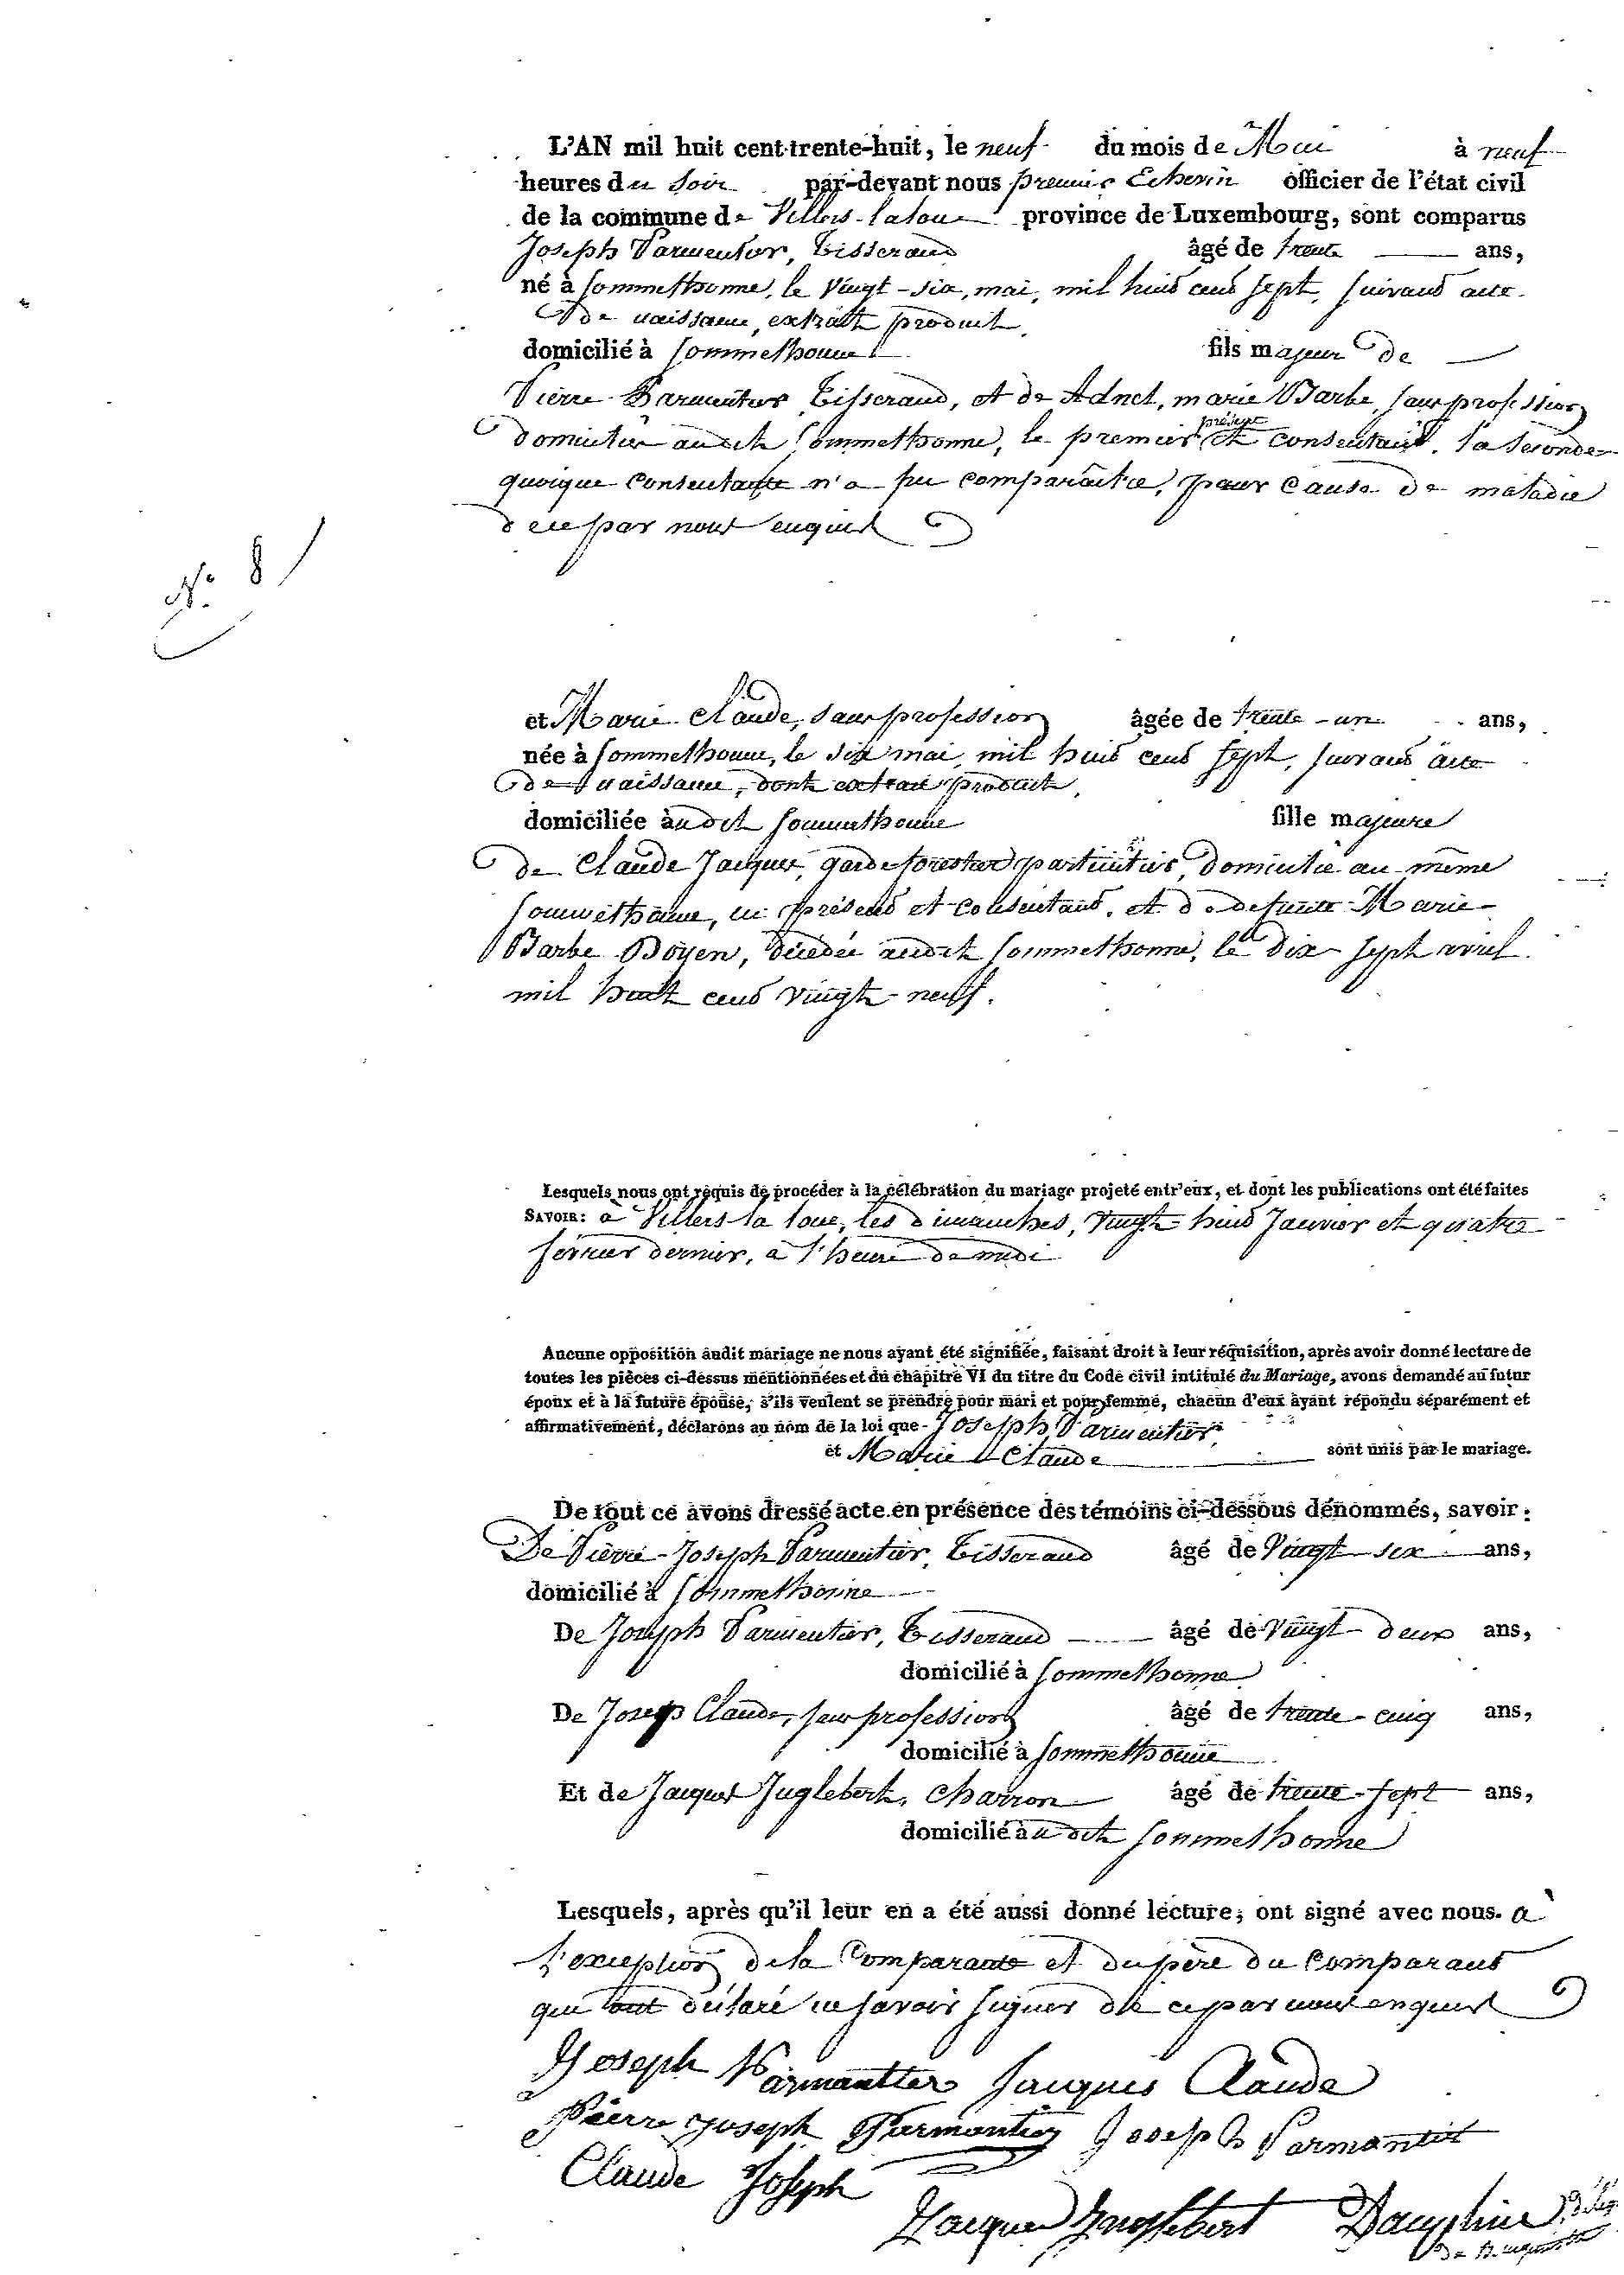 L'AN mil huit cent trente-huit, le neuf du mois de Mai à neuf
heures du soir par-devant nous premier Echevin officier de l'état civil
de la commune de Villers-la loue province de Luxembourg, sont comparus
Joseph Parmentier, Tisserand âgé de trente ans,
né à Sommethonne, le vingt-six, mai, mil huit cent sept, suivant acte
de naissance, extrait produit,
domicilié à Sommethonne fils majeur de
Pierre Parmentier Tisserand, et de Adnet, marie Barbe sans profession
domiciliés audit Sommethonne, le premier présent et consentant, la seconde
quoique consentante n'a pu comparaître, pour cause de maladie
de ce par nous enquis
N.º 8
et Marie Claude, sans profession âgée de trente-un ans,
née à Sommethonne, le six mai, mil huit cent sept, suivant acte
de naissance, dont extrait produit,
domiciliée audit Sommethonne fille majeure
de Claude Jacques, garde forestier particulier, domicilié au même
Sommethonne, ici présent et consentant, et de defunte Marie
Barbe Doyen, décédée audit Sommethonne, le dix-sept avril
mil huit cent vingt-neuf.
Lesquels nous ont requis de procéder à la célébration du mariage projeté entr'eux, et dont les publications ont été faites
SAVOIR: à Villers la loue, les dimanches, vingt huit Janvier et quatre
février dernier, à l'heure de midi
Aucune opposition audit mariage ne nous ayant été signifiée, faisant droit à leur réquisition, après avoir donné lecture de
toutes les pièces ci-dessus mentionnées et du chapitre VI du titre du Code civil intitulé du Mariage, avons demandé au futur
époux et à la future épouse, s'ils veulent se prendre pour mari et pour femme, chacun d'eux ayant répondu séparément et
affirmativement, déclarons au nom de la loi que Joseph Parmentier,
et Marie Claude sont unis par le mariage.
De tout ce avons dressé acte en présence des témoins ci-dessous dénommés, savoir:
De Pierre-Joseph Parmentier, Tisserand âgé de vingt-six ans,
domicilié à Sommethonne
De Joseph Parmentier, Tisserand âgé de vingt-deux ans,
domicilié à Sommethonne
De Joseph Claude, sans profession âgé de trente-cinq ans,
domicilié à Sommethonne
Et de Jacques Inglebert, charron âgé de trente-sept ans,
domicilié audit Sommethonne
Lesquels, après qu'il leur en a été aussi donné lecture, ont signé avec nous. à
l'exception de la Comparante et du père du Comparant
qui ont déclaré ne savoir signer de ce par nous enquis
Joseph Parmantier Jacques Claude
Pierre Joseph Parmantier Joseph Parmantier
Claude Joseph
Jacques Inglebert Dauphin